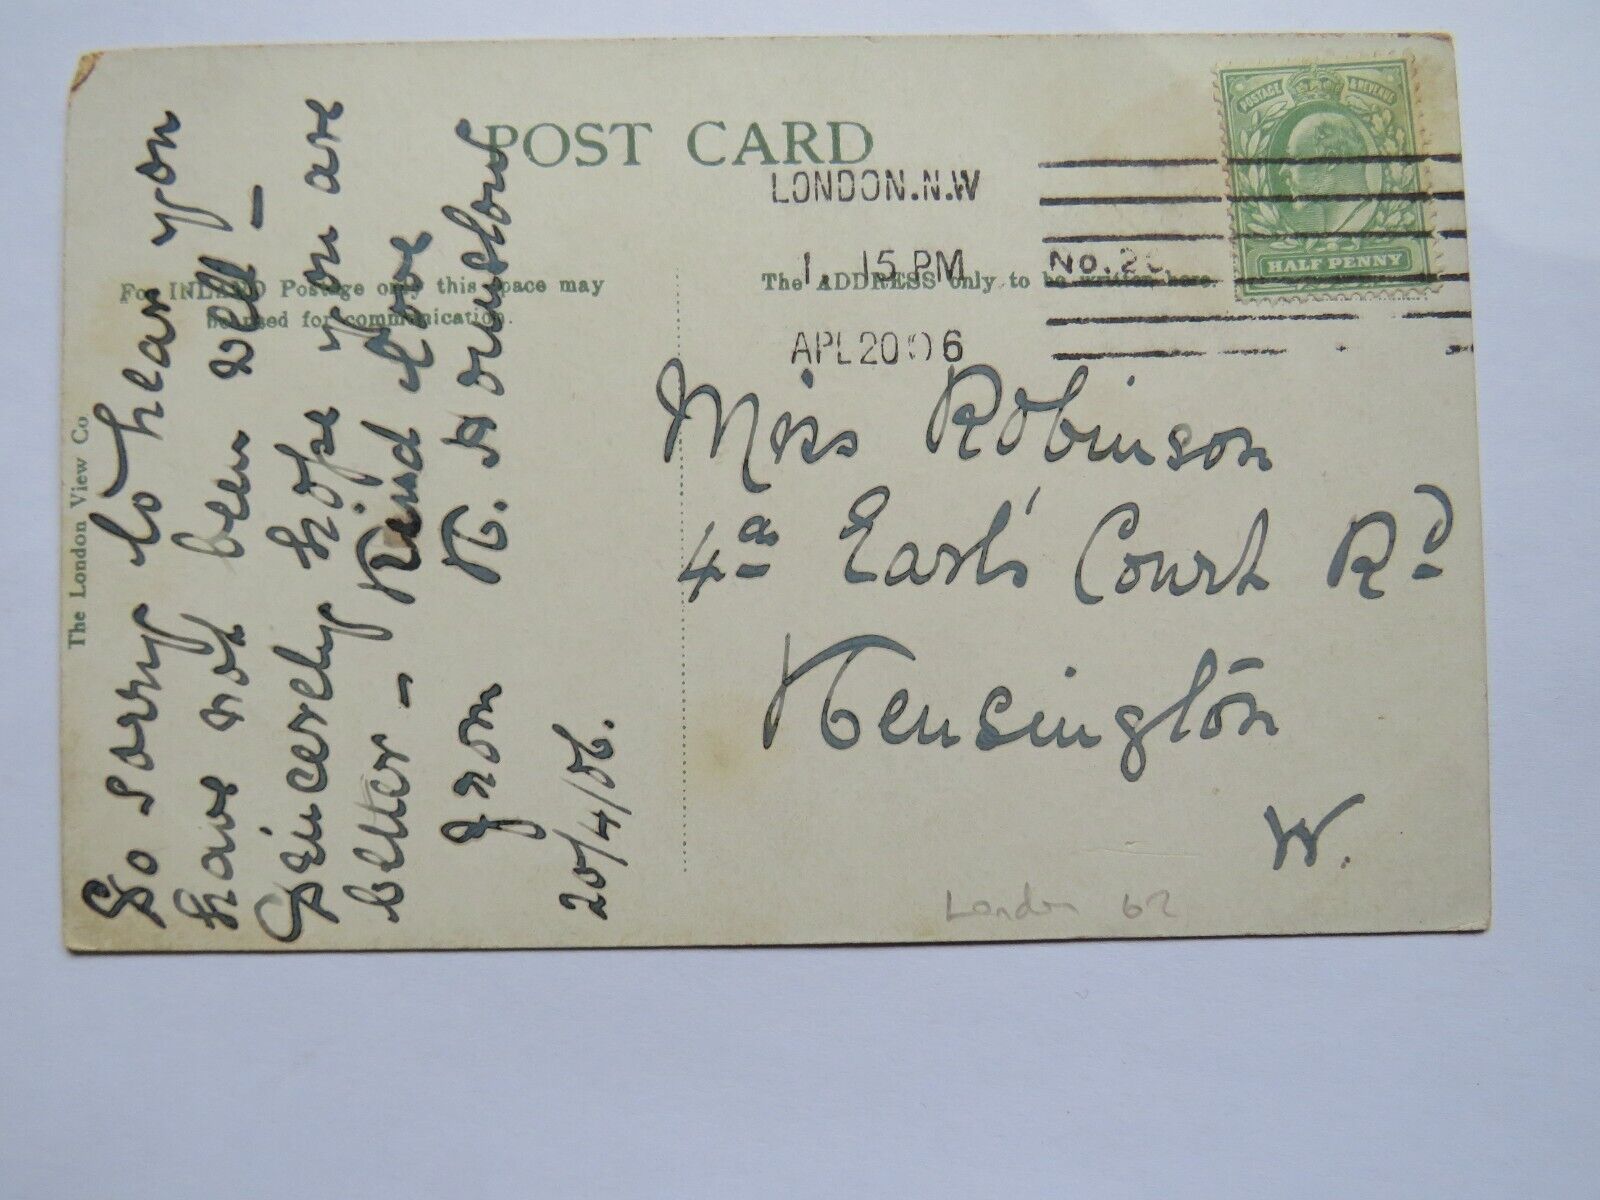 POST CARD
LONDON.N.W
1. 15 PM
APL 20 06
No. 2
POSTAGE & REVENUE
HALF PENNY
For INLAND Postage only this space may
be used for communication.
The ADDRESS only to be written here.
The London View Co
So sorry to hear you
have not been well –
Sincerely hope you are
better – Kind love
From K. Hounslow
20/4/06.
Miss Robinson
4a Earl's Court Rd
Kensington
W.
London 62